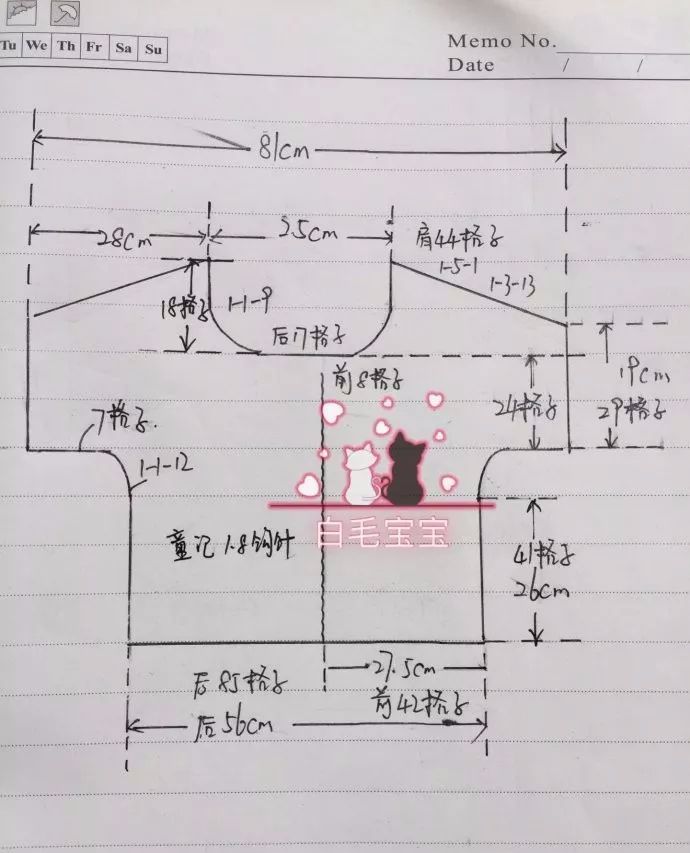 Tu We Th Fr Sa Su
Memo No.
Date / /
81cm
28cm
25cm
肩44格子
1-5-1
1-3-13
18格子
1-1-9
后17格子
前8格子
24格子
19cm
29格子
7格子.
1-1-12
白毛宝宝
童记 1.8钩针
41格子
26cm
27.5cm
后85格子
前42格子
后56cm